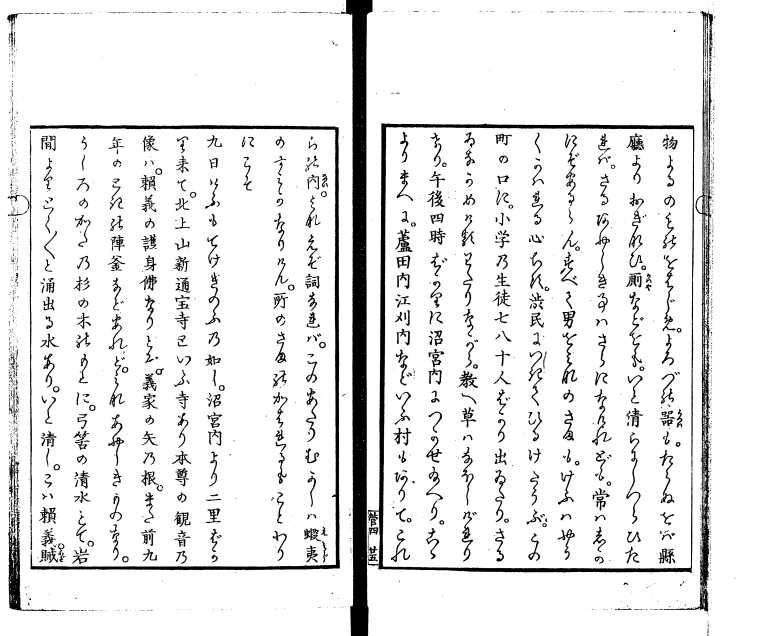 物よるのものをはじめ。よろづの器も。たらぬをバ縣
廳より。厠などをも。いと清らにしつらひた
れバ。さるあやしき事ハさらになけれども。常ハ
にぞあるらん。すべて男をみなのさまも。けふハやう
〳〵かハれる心ちす。渋民にてひるけたうぶ。この
町の口に。小学乃生徒七八十人ばかり出ゐたり。さる
ゐなかながら。教へ草ハなほしげれり
けり。午後四時ばかりに沼宮内につかせ給へり。こゝ
よりまへに。蘆田内江刈内などいふ村もありて。これ
らの内。詞なれバ。このあたりむかしハ蝦夷
のすみかなりけん。所のさまのかはれるもことわり
にこそ
九日けふもてけきのふ乃如し。沼宮内より二里ばか
り来て。北上山新通宝寺といふ寺あり本尊の観音乃
像ハ。頼義の護身佛なりとぞ。義家の矢乃根。また前九
年のときの陣釜などあれど。それあやしきものなり。
うしろのかた乃杉の木のもとに。弓筈の清水とて。岩
間よりとく〳〵と涌出る水あり。いと清し。こハ頼義賊